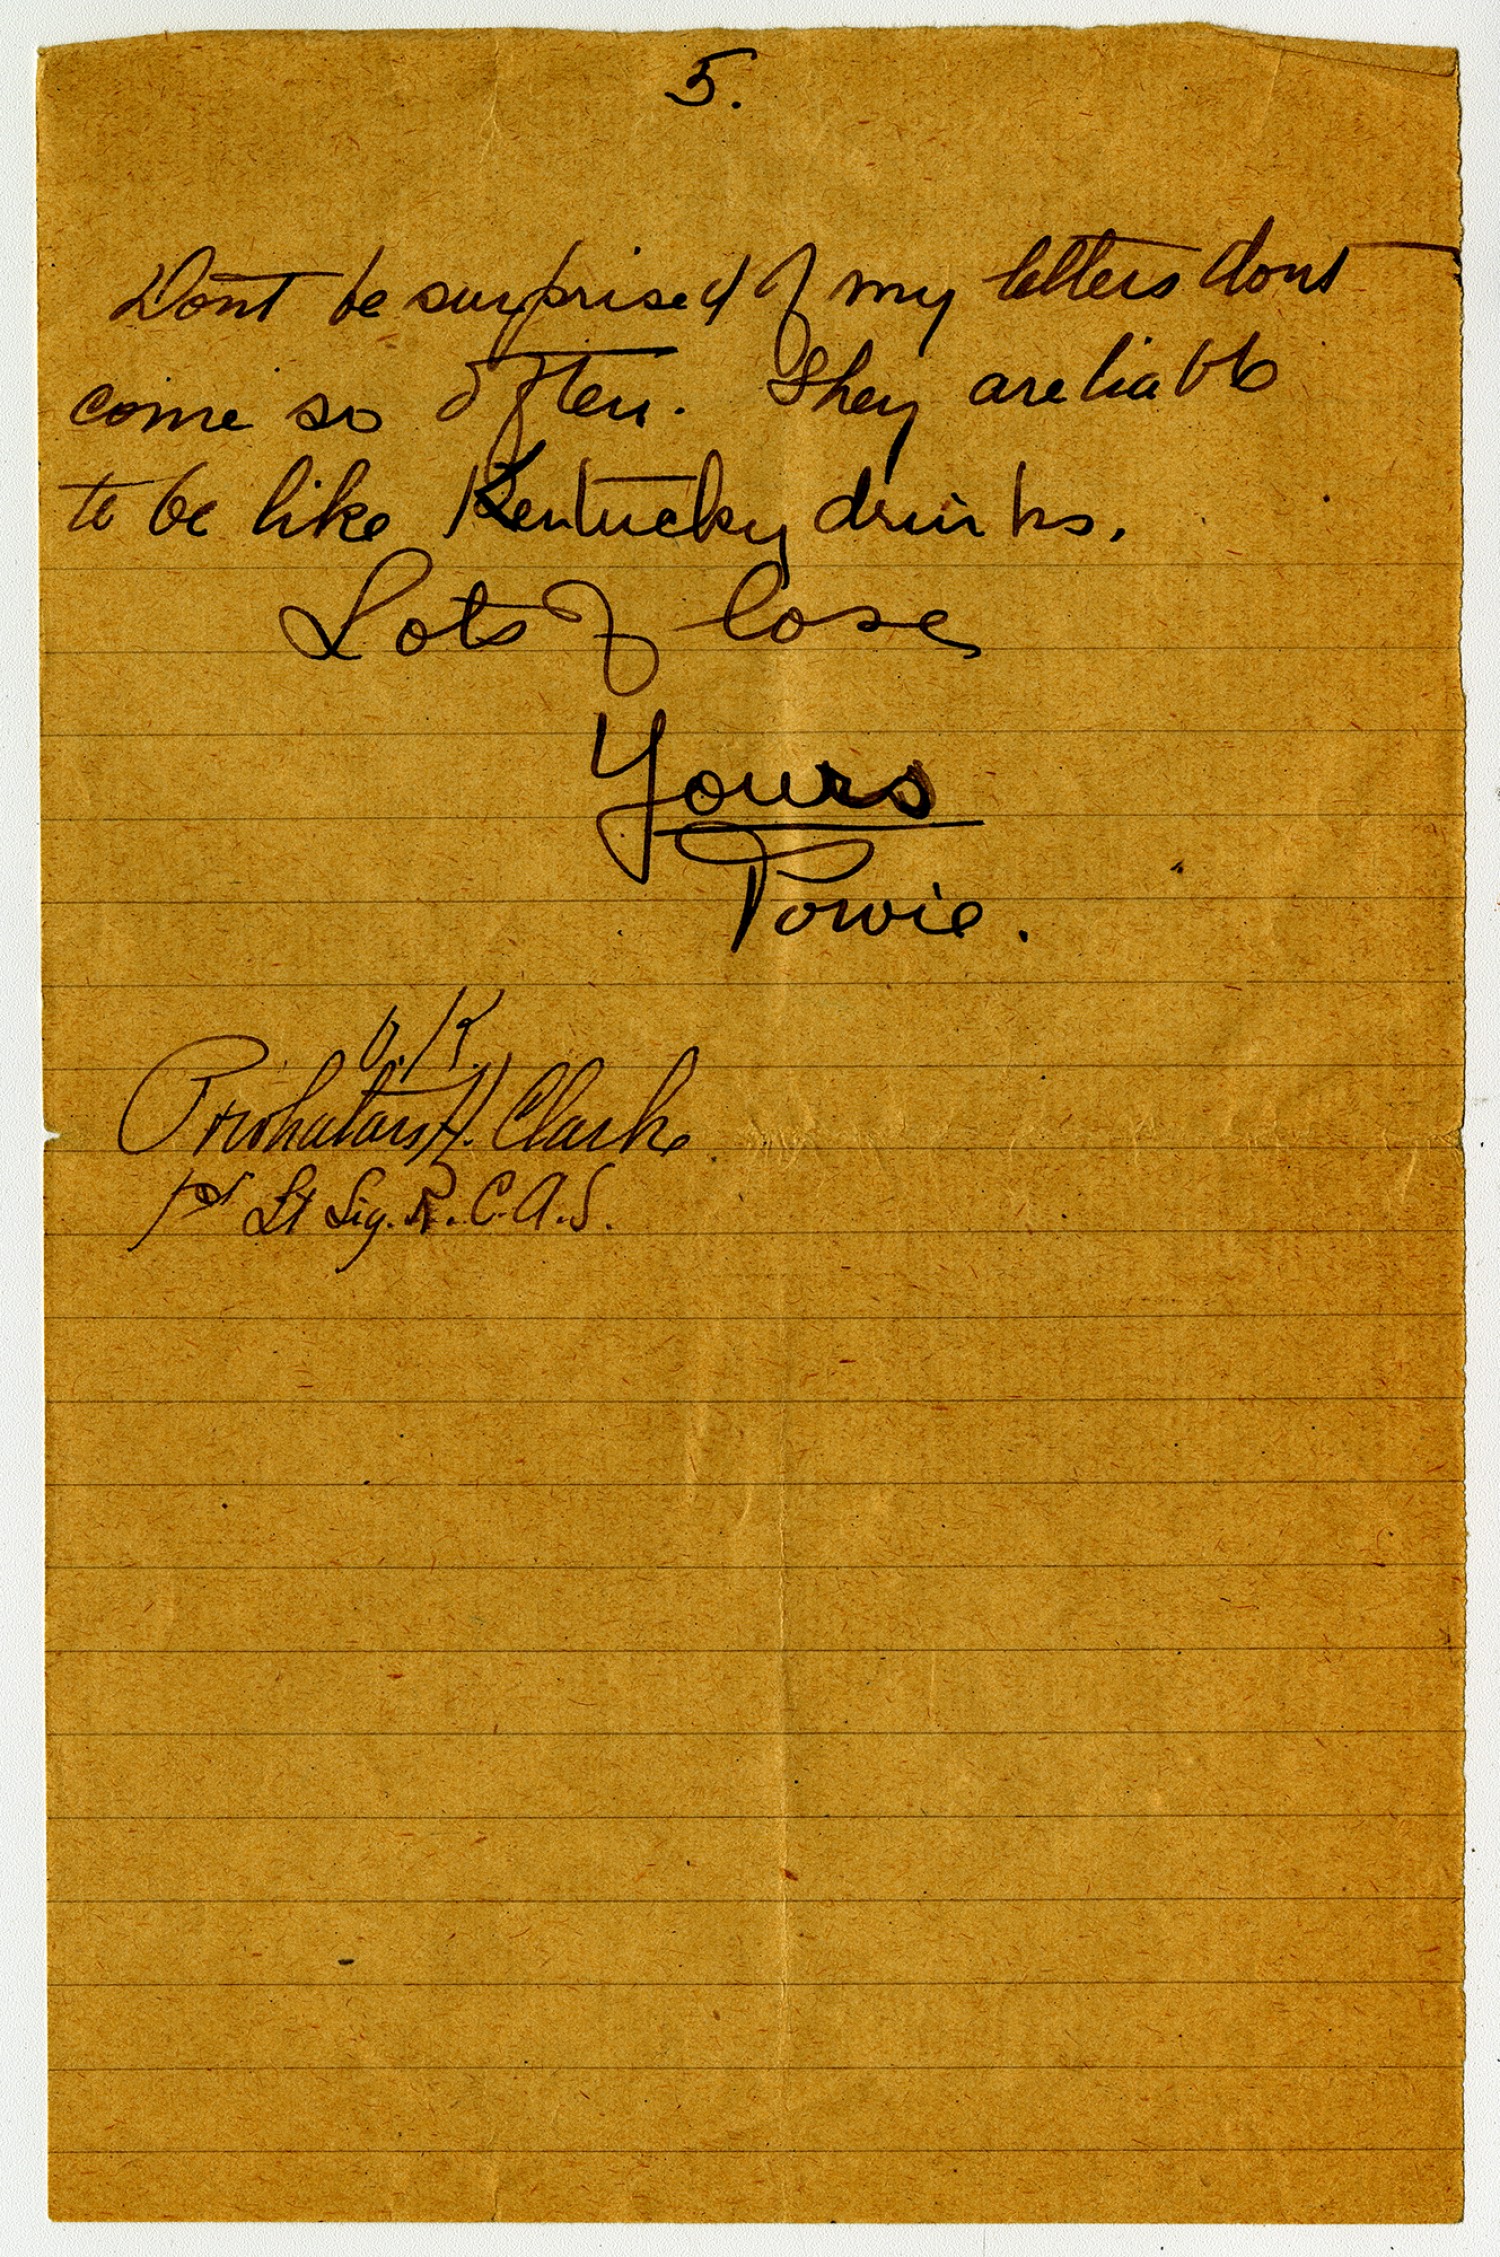 5.
Dont be surprised if my letters dont
come so often. They are liable
to be like Kentucky drinks.
Lots of love
Yours
Powie.
O.K.
Powhatan H. Clarke
1st Lt Sig. R.C.A.S.